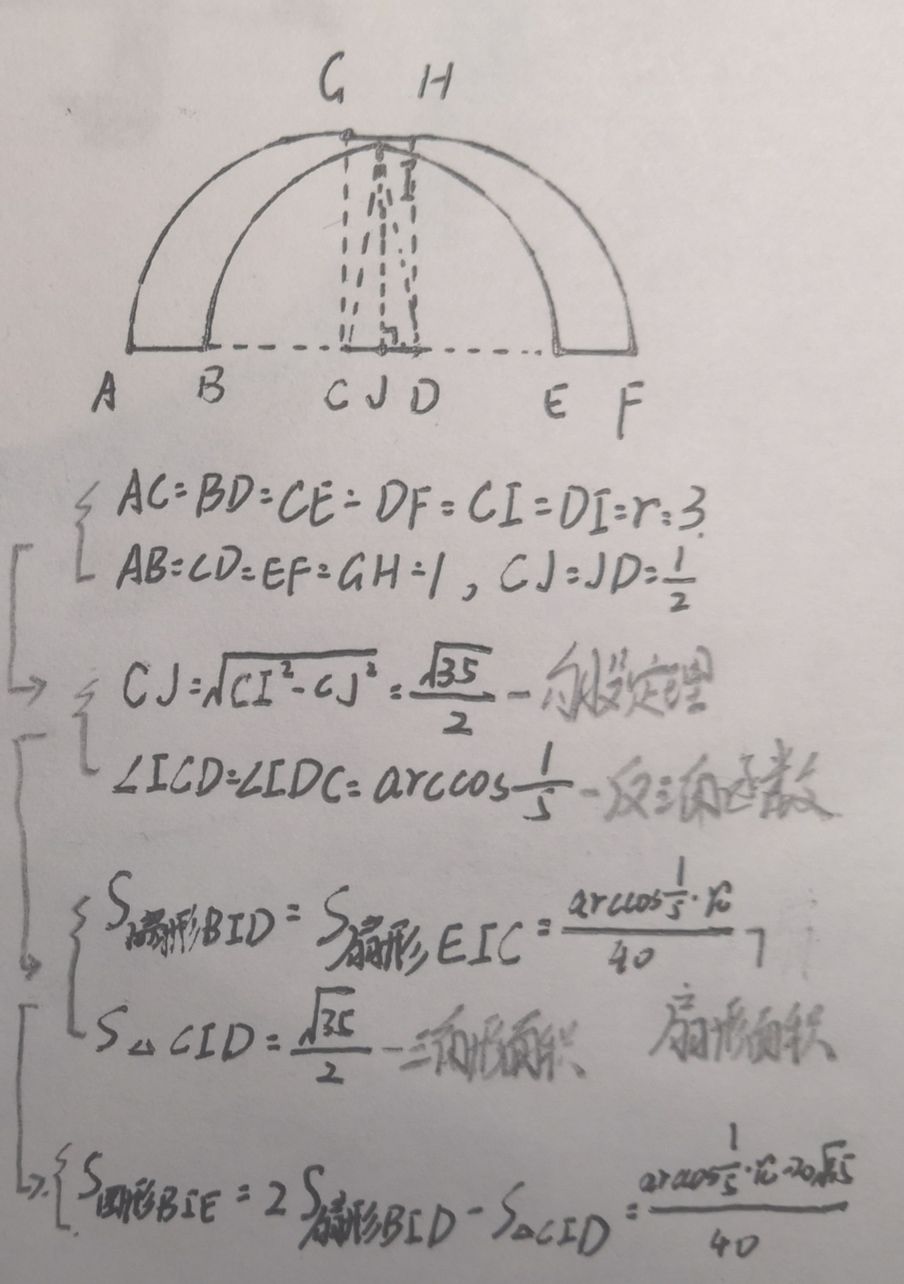 G H
I
A B C J D E F
AC=BD=CE=DF=CI=DI=r=3.
AB=CD=EF=GH=1, CJ=JD=1/2
CJ=√(CI²-CJ²)=√35/2-勾股定理
∠ICD=∠IDC=arccos1/5-反三角函数
S扇形BID=S扇形EIC=arccos1/5·π/40
S△CID=√35/2-三角形面积 扇形面积
S图形BIE=2S扇形BID-S△CID=arccos1/5·π-20√35/40